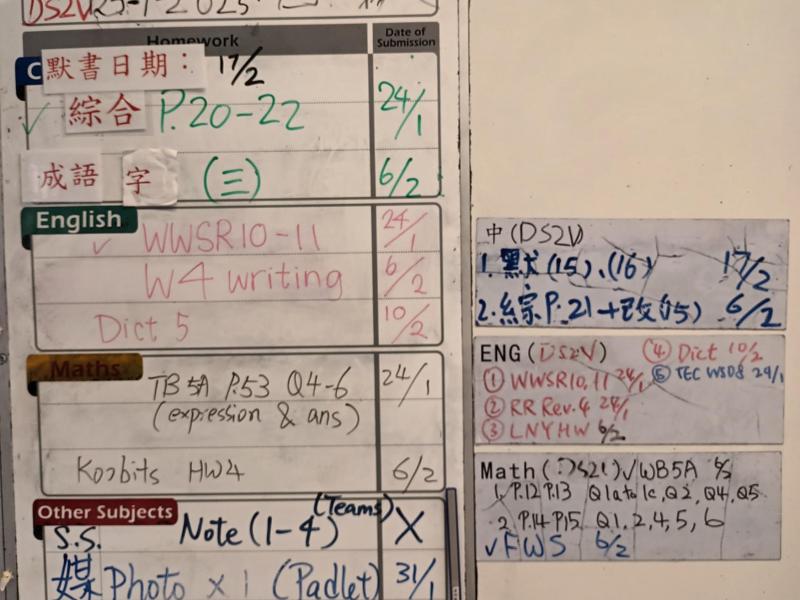 DS2V
Homework
Date of Submission
默書日期： 17/2
綜合 P.20-22 24/1
成語 字 (三) 6/2
English
WWSR10-11 24/1
W4 writing 6/2
Dict 5 10/2
Maths
TB 5A P.53 Q4-6 24/1
(expression & ans)
Koobits HW4 6/2
Other Subjects
S.S. Note (1-4) (Teams) X
媒 Photo x 1 (Padlet) 31/1
中 (DS2V)
1. 默 (15)、(16) 17/2
2. 綜 P.21+改(15) 6/2
ENG (DS2V)
④ Dict 10/2
① WWSR10,11 24/1
⑤ TEC WS08 24/1
② RR Rev.4 24/1
③ LNY HW 6/2
Math (DS21) √WB5A 6/2
1. P.12 P.13 Q1a to 1c, Q2, Q4, Q5
2. P.14-P.15 Q1, 2, 4, 5, 6
√FWS 6/2